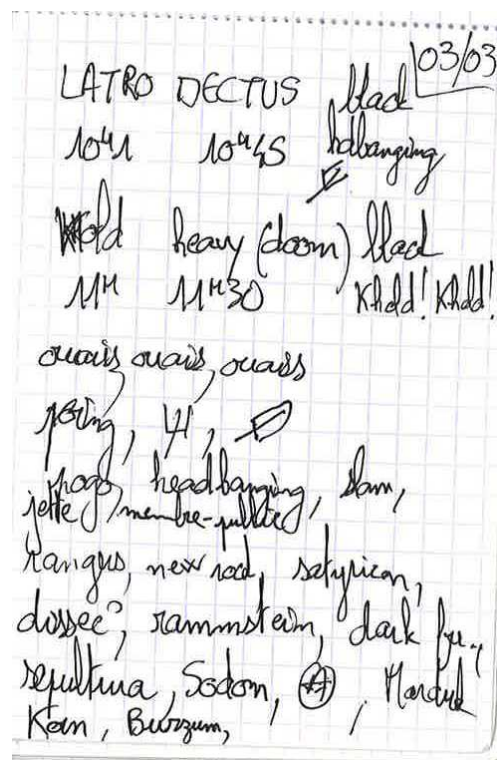 03/03
LATRO DECTUS black
10h41 10h45 habanging
Kold heavy (doom) black
11H 11H30 Khold! Khold!
ouais, ouais, ouaiss
poing,
pogo, headbanging, slam,
jette membre-public
rangus, new rock, satyricon,
rammstein, dark fu..,
sepultura, Sodom, Marduk
Korn, Burzum,